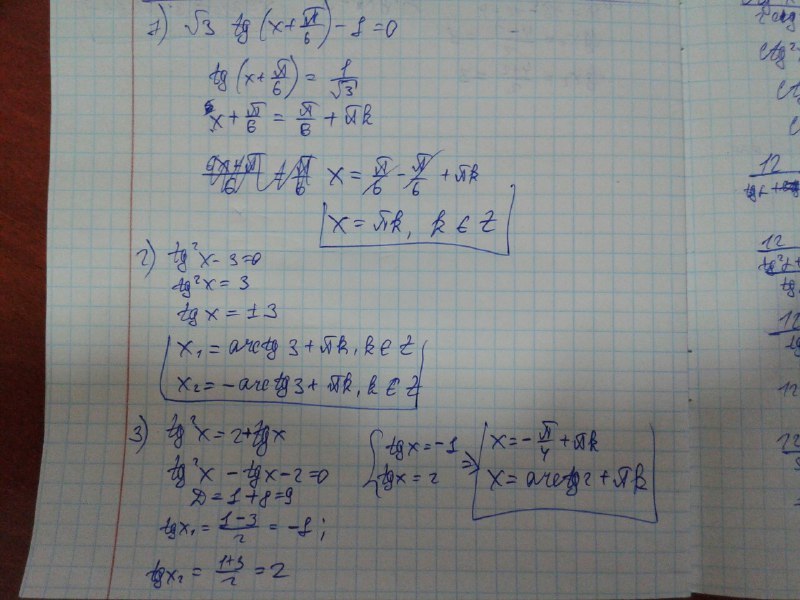 1) √3 tg(x+π/6)-1=0
tg(x+π/6)=1/√3
x+π/6=π/6+πk
x=π/6-π/6+πk
x=πk, k∈Z
2) tg²x-3=0
tg²x=3
tgx=±3
x₁=arctg3+πk, k∈Z
x₂=-arctg3+πk, k∈Z
3) tg²x=2+tgx
tg²x-tgx-2=0
D=1+8=9
tgx₁=(1-3)/2=-1;
tgx₂=(1+3)/2=2
{tgx=-1 ⇒ x=-π/4+πk
tgx=2 x=arctg2+πk
ctg²
12
12
12
12